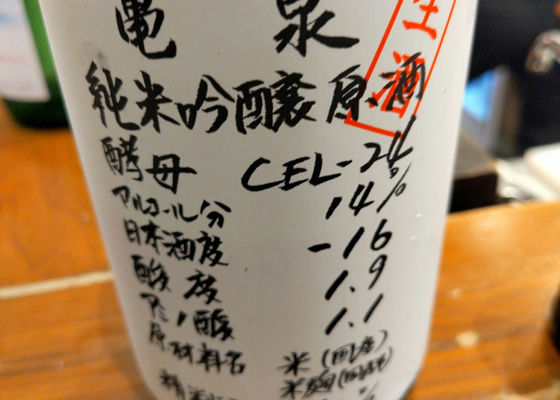 亀泉
生酒
純米吟醸原酒
酵母 CEL-24
アルコール分 14%
日本酒度 -16
酸度 1.9
アミノ酸 1.1
原材料名 米(国産)
米麹(国産米)